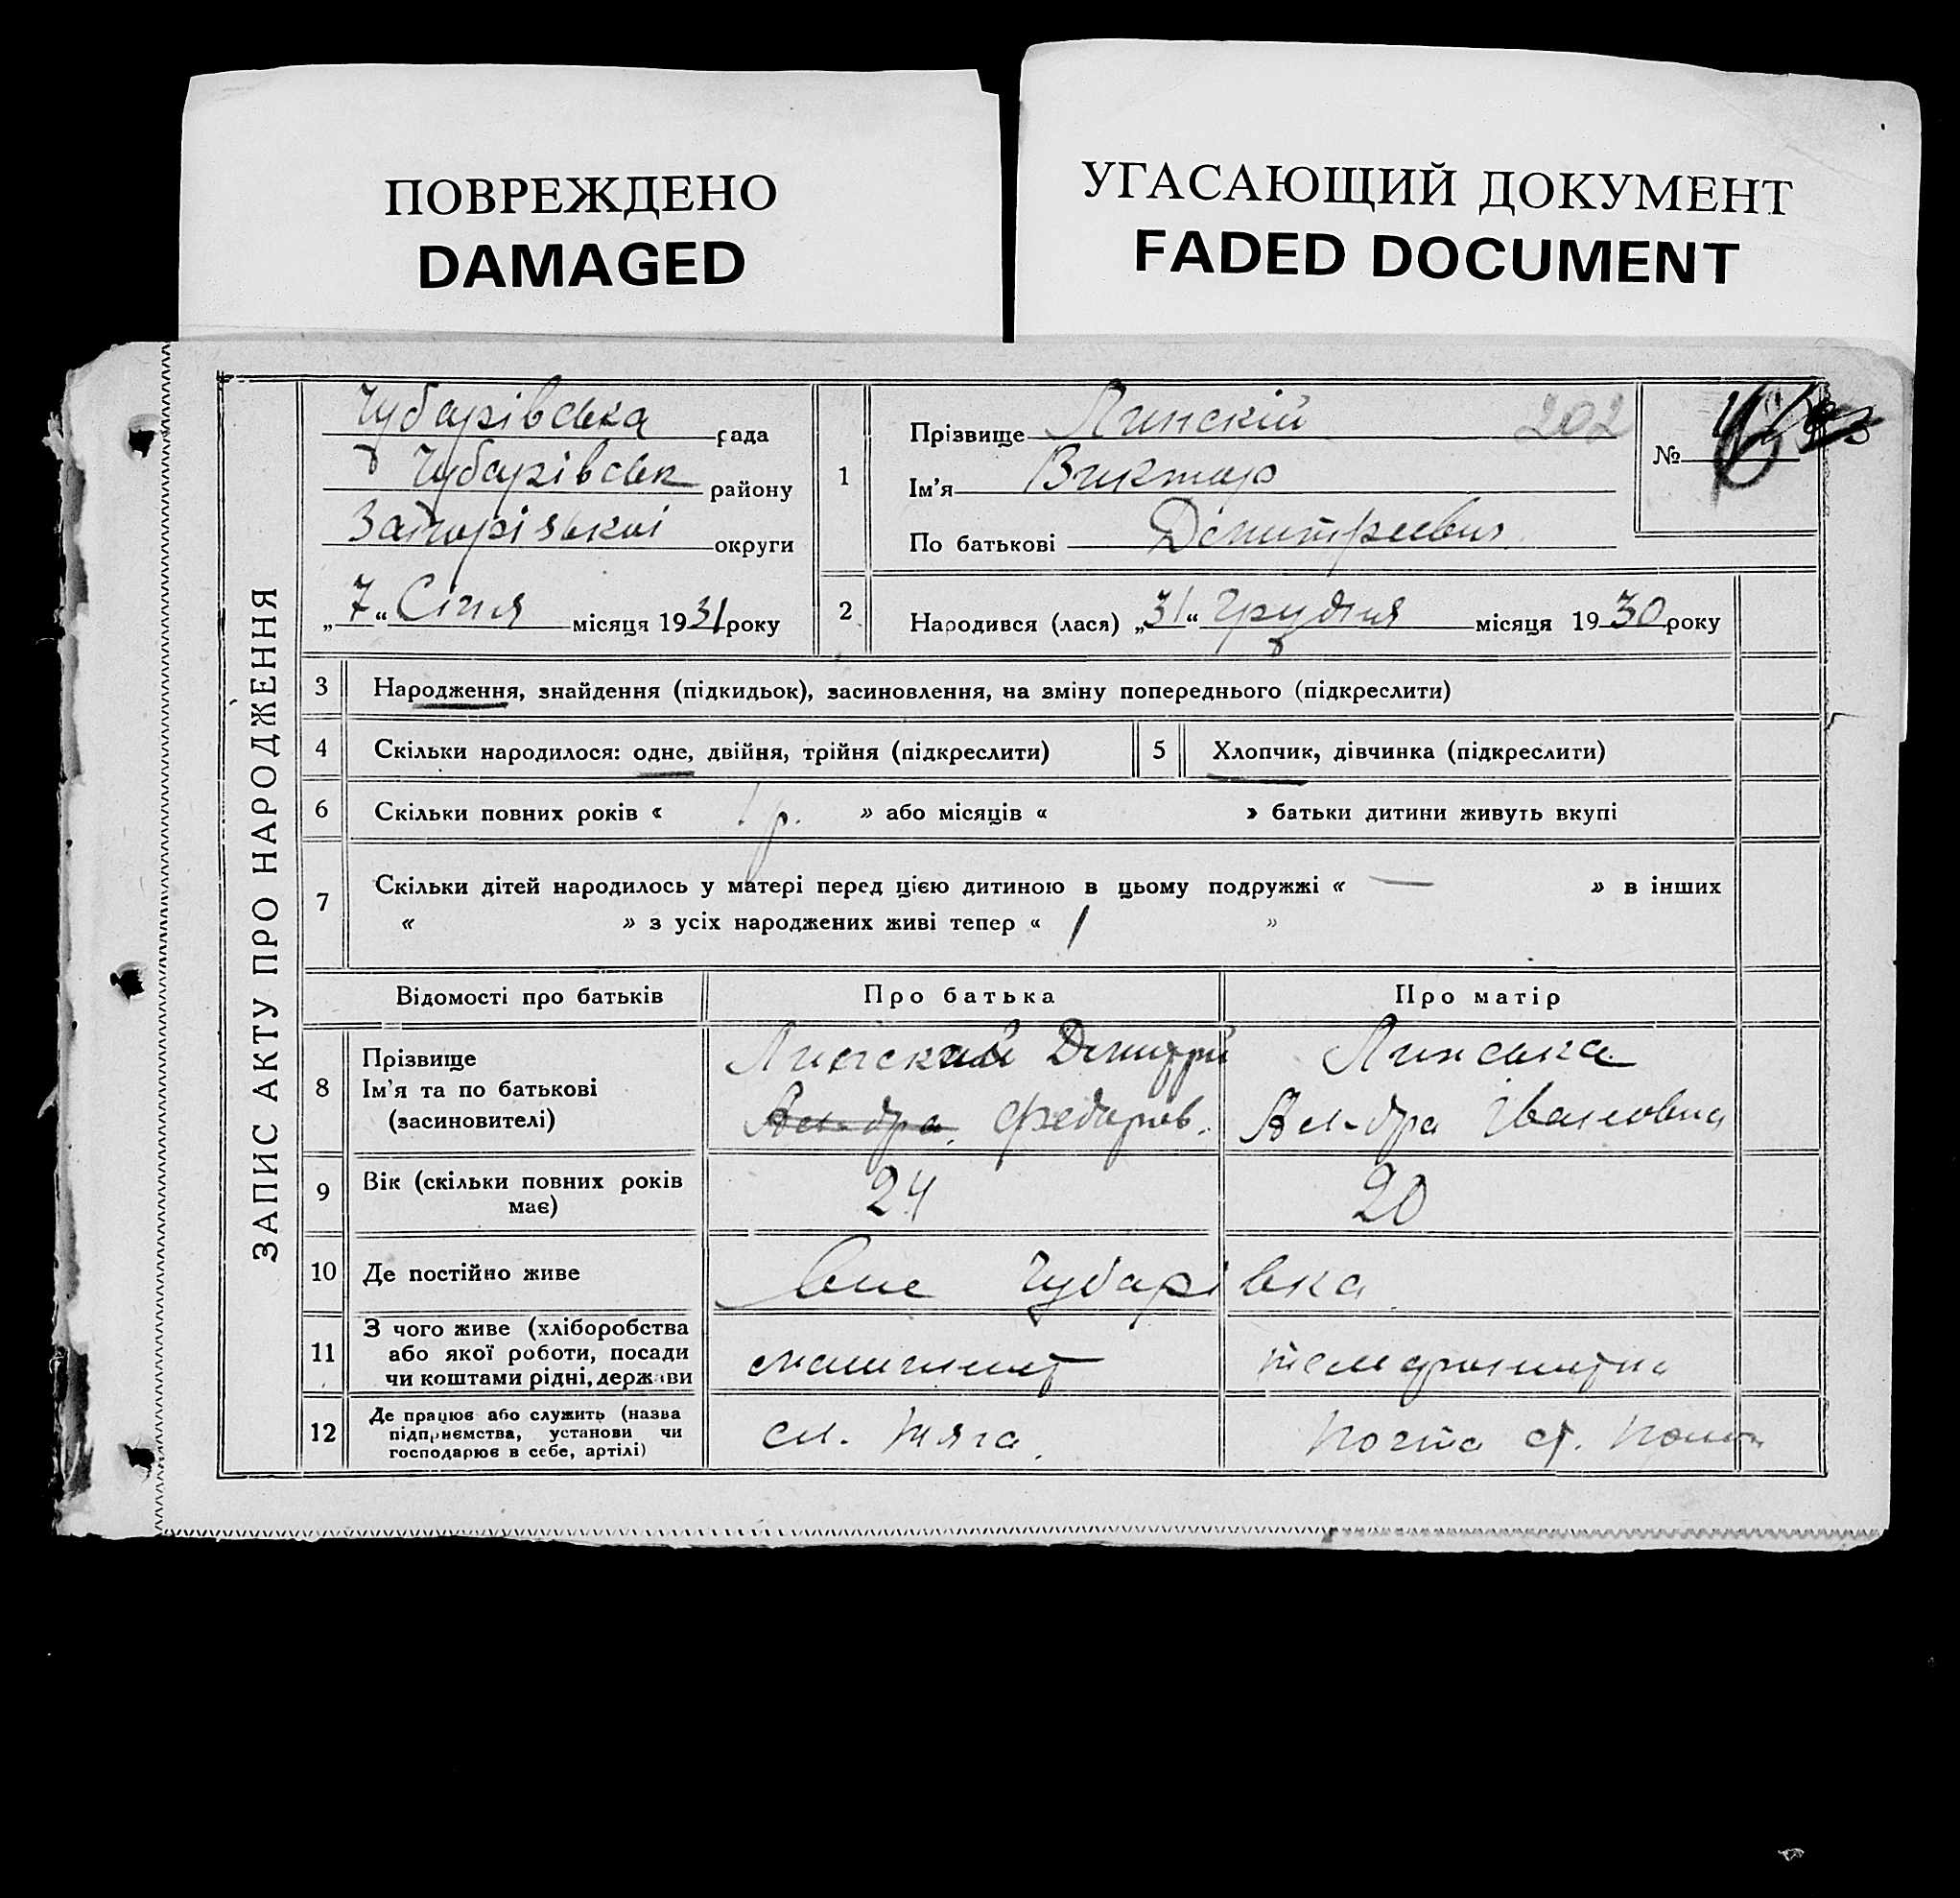 ПОВРЕЖДЕНО
DAMAGED
УГАСАЮЩИЙ ДОКУМЕНТ
FADED DOCUMENT
ЗАПИС АКТУ ПРО НАРОДЖЕННЯ
Чубарівська рада
Чубарівськ району
Запорізької округи
„7“ Січня місяця 1931 року
1
Прізвище Линскій 202
Ім'я Виктор
По батькові Дмитриевич
№
2
Народився (лася) „31“ Грудня місяця 1930 року
3 Народження, знайдення (підкидьок), засиновлення, на зміну попереднього (підкреслити)
4 Скільки народилося: одне, двійня, трійня (підкреслити) 5 Хлопчик, дівчинка (підкреслити)
6 Скільки повних років « 1 р. » або місяців « » батьки дитини живуть вкупі
7 Скільки дітей народилось у матері перед цією дитиною в цьому подружжі « — » в інших
« » з усіх народжених живі тепер « 1 »
Відомості про батьків Про батька Про матір
8 Прізвище
Ім'я та по батькові
(засиновителі)
Линский Дмитрий
Ал-дра. Федоров.
Линська
Ал-дра Івановна
9 Вік (скільки повних років
має)
24 20
10 Де постійно живе Чубарівка
11 З чого живе (хліборобства
або якої роботи, посади
чи коштами рідні, держави
машинист телеграфистка
12 Де працює або служить (назва
підприємства, установи чи
господарює в себе, артілі)
сл. тяга. Почта ст.